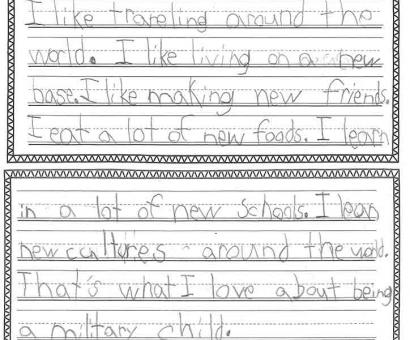 I like traveling around the
world. I like living on a new
base. I like making new friends.
I eat a lot of new foods. I learn
in a lot of new schools. I lean
new cultures around the world.
That's what I love about being
a military child.